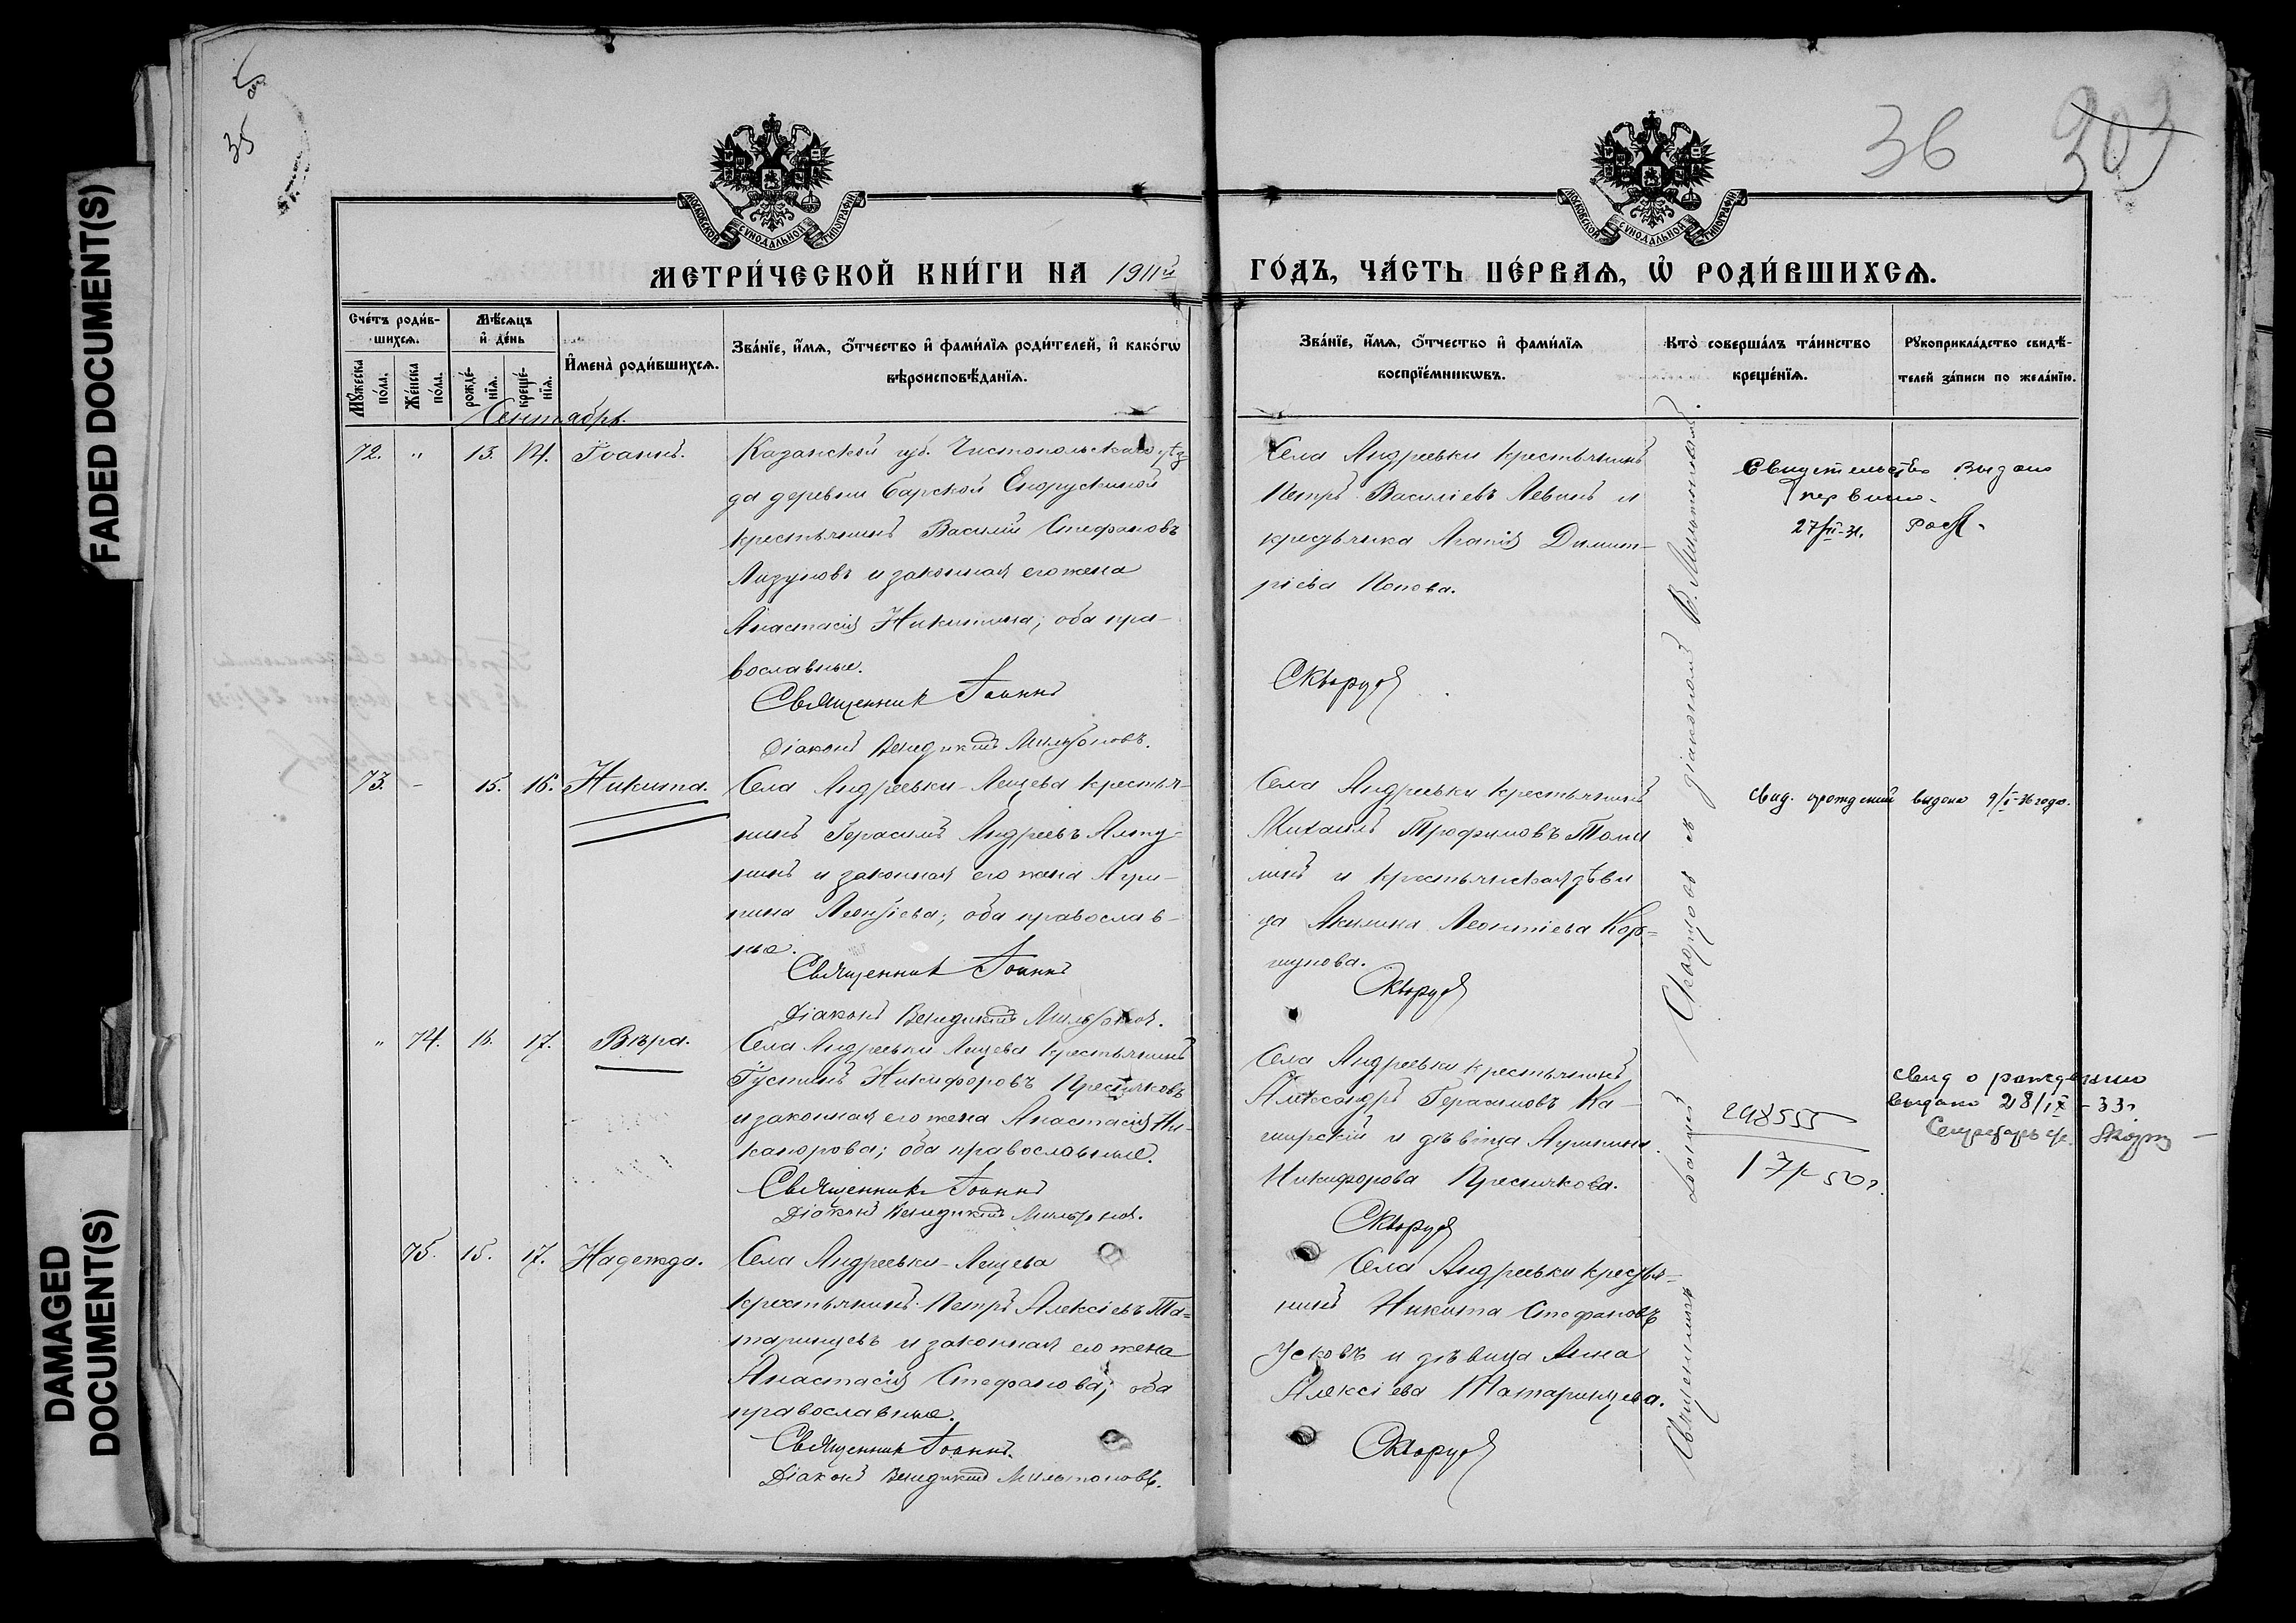 FADED DOCUMENT(S)
DAMAGED
DOCUMENT(S)
35
36
303
МОСКОВСКОЙ СѴНОДАЛЬНОЙ ТИПОГРАФІИ
МОСКОВСКОЙ СѴНОДАЛЬНОЙ ТИПОГРАФІИ
МЕТРИ́ЧЕСКОЙ КНИ́ГИ НА 1911й
ГО́ДЪ, ЧА́СТЬ ПЕ́РВАѦ, Ѡ҆ РОДИ́ВШИХСѦ.
Сче́тъ роди́в-
шихсѧ.
Мꙋ́жеска по́ла.
Же́нска по́ла.
Мѣ́сѧцъ
и҆ де́нь
рожде́-
нїѧ.
креще́-
нїѧ.
И҆мена̀ роди́вшихсѧ.
Зва́нїе, и҆́мѧ, ѻ҆́тчество и҆ фами́лїѧ роди́телей, и҆ како́гѡ
вѣроисповѣ́данїѧ.
Зва́нїе, и҆́мѧ, ѻ҆́тчество и҆ фами́лїѧ
воспрїе́мникѡвъ.
Кто̀ соверша́лъ та́инство
креще́нїѧ.
Рꙋкоприкла́дство свидѣ́-
телей за́писи по жела́нїю.
Сентябрь.
72. " 13. 14. Іоаннъ.
Казанской губ. Чистопольскаго уѣз-
да деревни Барской Енорускиной
крестьянинъ Василій Стефановъ
Лизуновъ и законная его жена
Анастасія Никитина; оба пра-
вославные.
Священник Іоаннъ
Діаконъ Венедиктъ Мильтоновъ.
Села Андреевки крестьянинъ
Петръ Василіевъ Левинъ и
крестьянка Агапія Димит-
ріева Попова.
Скворцов
Свидетельство выдано
27/II-31.
73. - 15. 16. Никита.
Села Андреевки-Лещева крестья-
нинъ Герасимъ Андреевъ Алту-
нинъ и законная его жена Агри-
пина Леонтіева; оба православ-
ные.
Священник Іоаннъ
Діаконъ Венедиктъ Мильтонов.
Села Андреевки крестьянинъ
Михаилъ Трофимовъ Томи
линъ и крестьянская дѣви
ца Акилина Леонтіева Кор-
шунова.
Скворцов
свид. о рождении выдано 9/I-36 года.
" 74. 16. 17. Вѣра.
Села Андреевки Лещева крестьянинъ
Іустинъ Никифоровъ Пресняковъ
и законная его жена Анастасія Ни-
канорова; оба православные.
Священник Іоаннъ
Діаконъ Венедиктъ Мильтонов.
Села Андреевки крестьянинъ
Александръ Герасимовъ Ка-
ширскій и дѣвица Агрипина
Никифорова Преснякова.
Скворцов
298555
свид о рождении
выдано 28/IX-33г
75. 15. 17. Надежда.
Села Андреевки-Лещева
крестьянинъ Петръ Алексіевъ Та-
таринцевъ и законная его жена
Анастасія Стефанова; оба
православные.
Священник Іоаннъ.
Діаконъ Венедиктъ Мильтоновъ.
Села Андреевки крестья-
нинъ Никита Стефановъ
Усковъ и дѣвица Анна
Алексіева Татаринцева.
Скворцов
Священникъ Іоаннъ Скворцовъ съ діакономъ В. Мильтоновымъ.